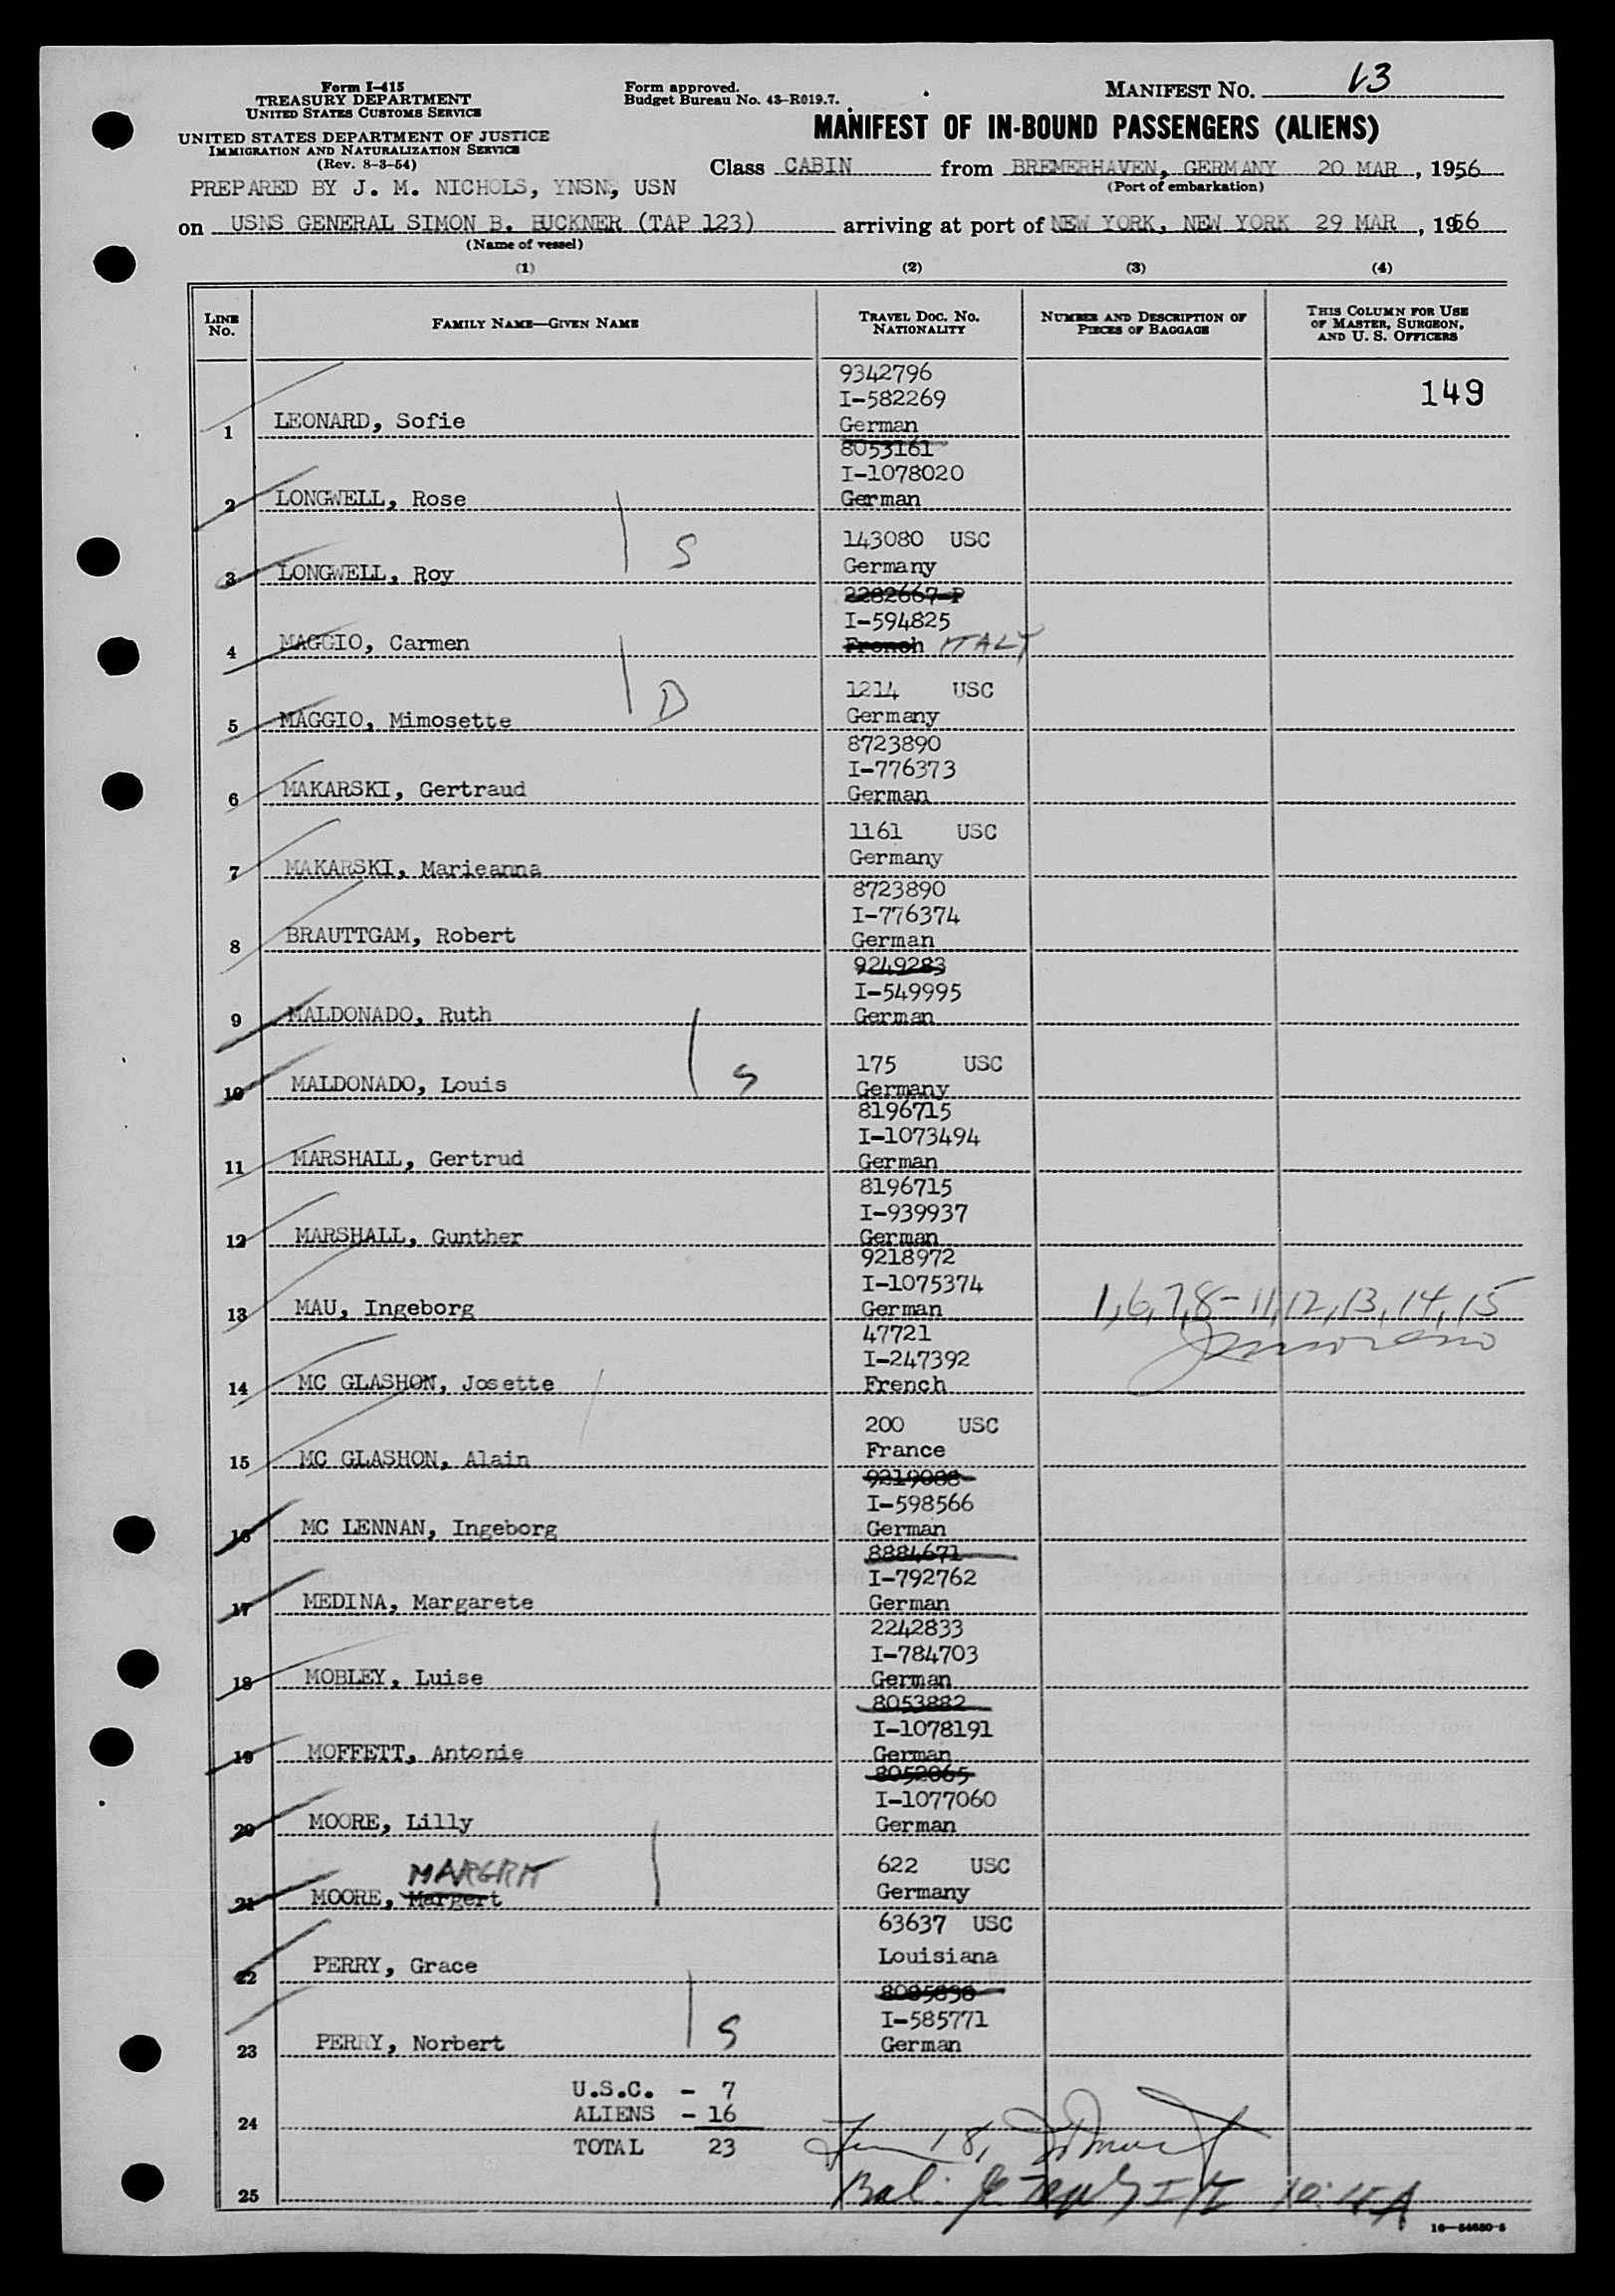 Form I-415
TREASURY DEPARTMENT
UNITED STATES CUSTOMS SERVICE
UNITED STATES DEPARTMENT OF JUSTICE
IMMIGRATION AND NATURALIZATION SERVICE
(Rev. 8-3-54)
PREPARED BY J. M. NICHOLS, YNSN, USN
Form approved.
Budget Bureau No. 43-R019.7.
MANIFEST NO. 13
MANIFEST OF IN-BOUND PASSENGERS (ALIENS)
Class CABIN from BREMERHAVEN, GERMANY 20 MAR, 1956
(Port of embarkation)
on USNS GENERAL SIMON B. BUCKNER (TAP 123) arriving at port of NEW YORK, NEW YORK 29 MAR, 1956
(Name of vessel)
(1) (2) (3) (4)
LINE NO. FAMILY NAME—GIVEN NAME TRAVEL DOC. NO. NATIONALITY NUMBER AND DESCRIPTION OF PIECES OF BAGGAGE THIS COLUMN FOR USE OF MASTER, SURGEON, AND U. S. OFFICERS
149
9342796
I-582269
1 LEONARD, Sofie German
8053161
I-1078020
2 LONGWELL, Rose German
143080 USC
S
3 LONGWELL, Roy Germany
2282667-P
I-594825
4 MAGGIO, Carmen French ITALY
1214 USC
D
5 MAGGIO, Mimosette Germany
8723890
I-776373
6 MAKARSKI, Gertraud German
1161 USC
7 MAKARSKI, Marieanna Germany
8723890
I-776374
8 BRAUTTGAM, Robert German
9249283
I-549995
9 MALDONADO, Ruth German
175 USC
S
10 MALDONADO, Louis Germany
8196715
I-1073494
11 MARSHALL, Gertrud German
8196715
I-939937
12 MARSHALL, Gunther German
9218972
I-1075374
13 MAU, Ingeborg German 1,6,7,8-11,12,13,14,15
47721
I-247392
14 MC GLASHON, Josette French
200 USC
15 MC GLASHON, Alain France
9219088
I-598566
16 MC LENNAN, Ingeborg German
8884671
I-792762
17 MEDINA, Margarete German
2242833
I-784703
18 MOBLEY, Luise German
8053882
I-1078191
19 MOFFETT, Antonie German
8052065
I-1077060
20 MOORE, Lilly German
622 USC
MARGRIT
21 MOORE, Margert Germany
63637 USC
22 PERRY, Grace Louisiana
8085838
I-585771
S
23 PERRY, Norbert German
U.S.C. - 7
ALIENS - 16
24
TOTAL 23
Bal.
25
16—54680-5